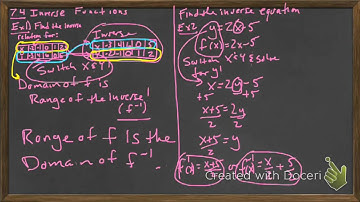 7.4 Inverse Functions
Ex1) Find the inverse
relation for:
Inverse
Switch X & Y!
Domain of f is
Range of the Inverse!
(f⁻¹)
Range of f is the
Domain of f⁻¹.
Find the inverse equation
Ex2) y=2x-5
f(x)=2x-5
Switch x & y & solve
for y!
x=2y-5
+5 +5
x+5=2y
2 2
x+5=y
2
f⁻¹(x)=x+5/2 or f⁻¹(x)=x/2+5
Created with Doceri